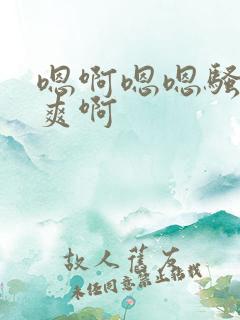 嗯啊嗯嗯骚
爽啊
故人舊友
未经同意禁止转载